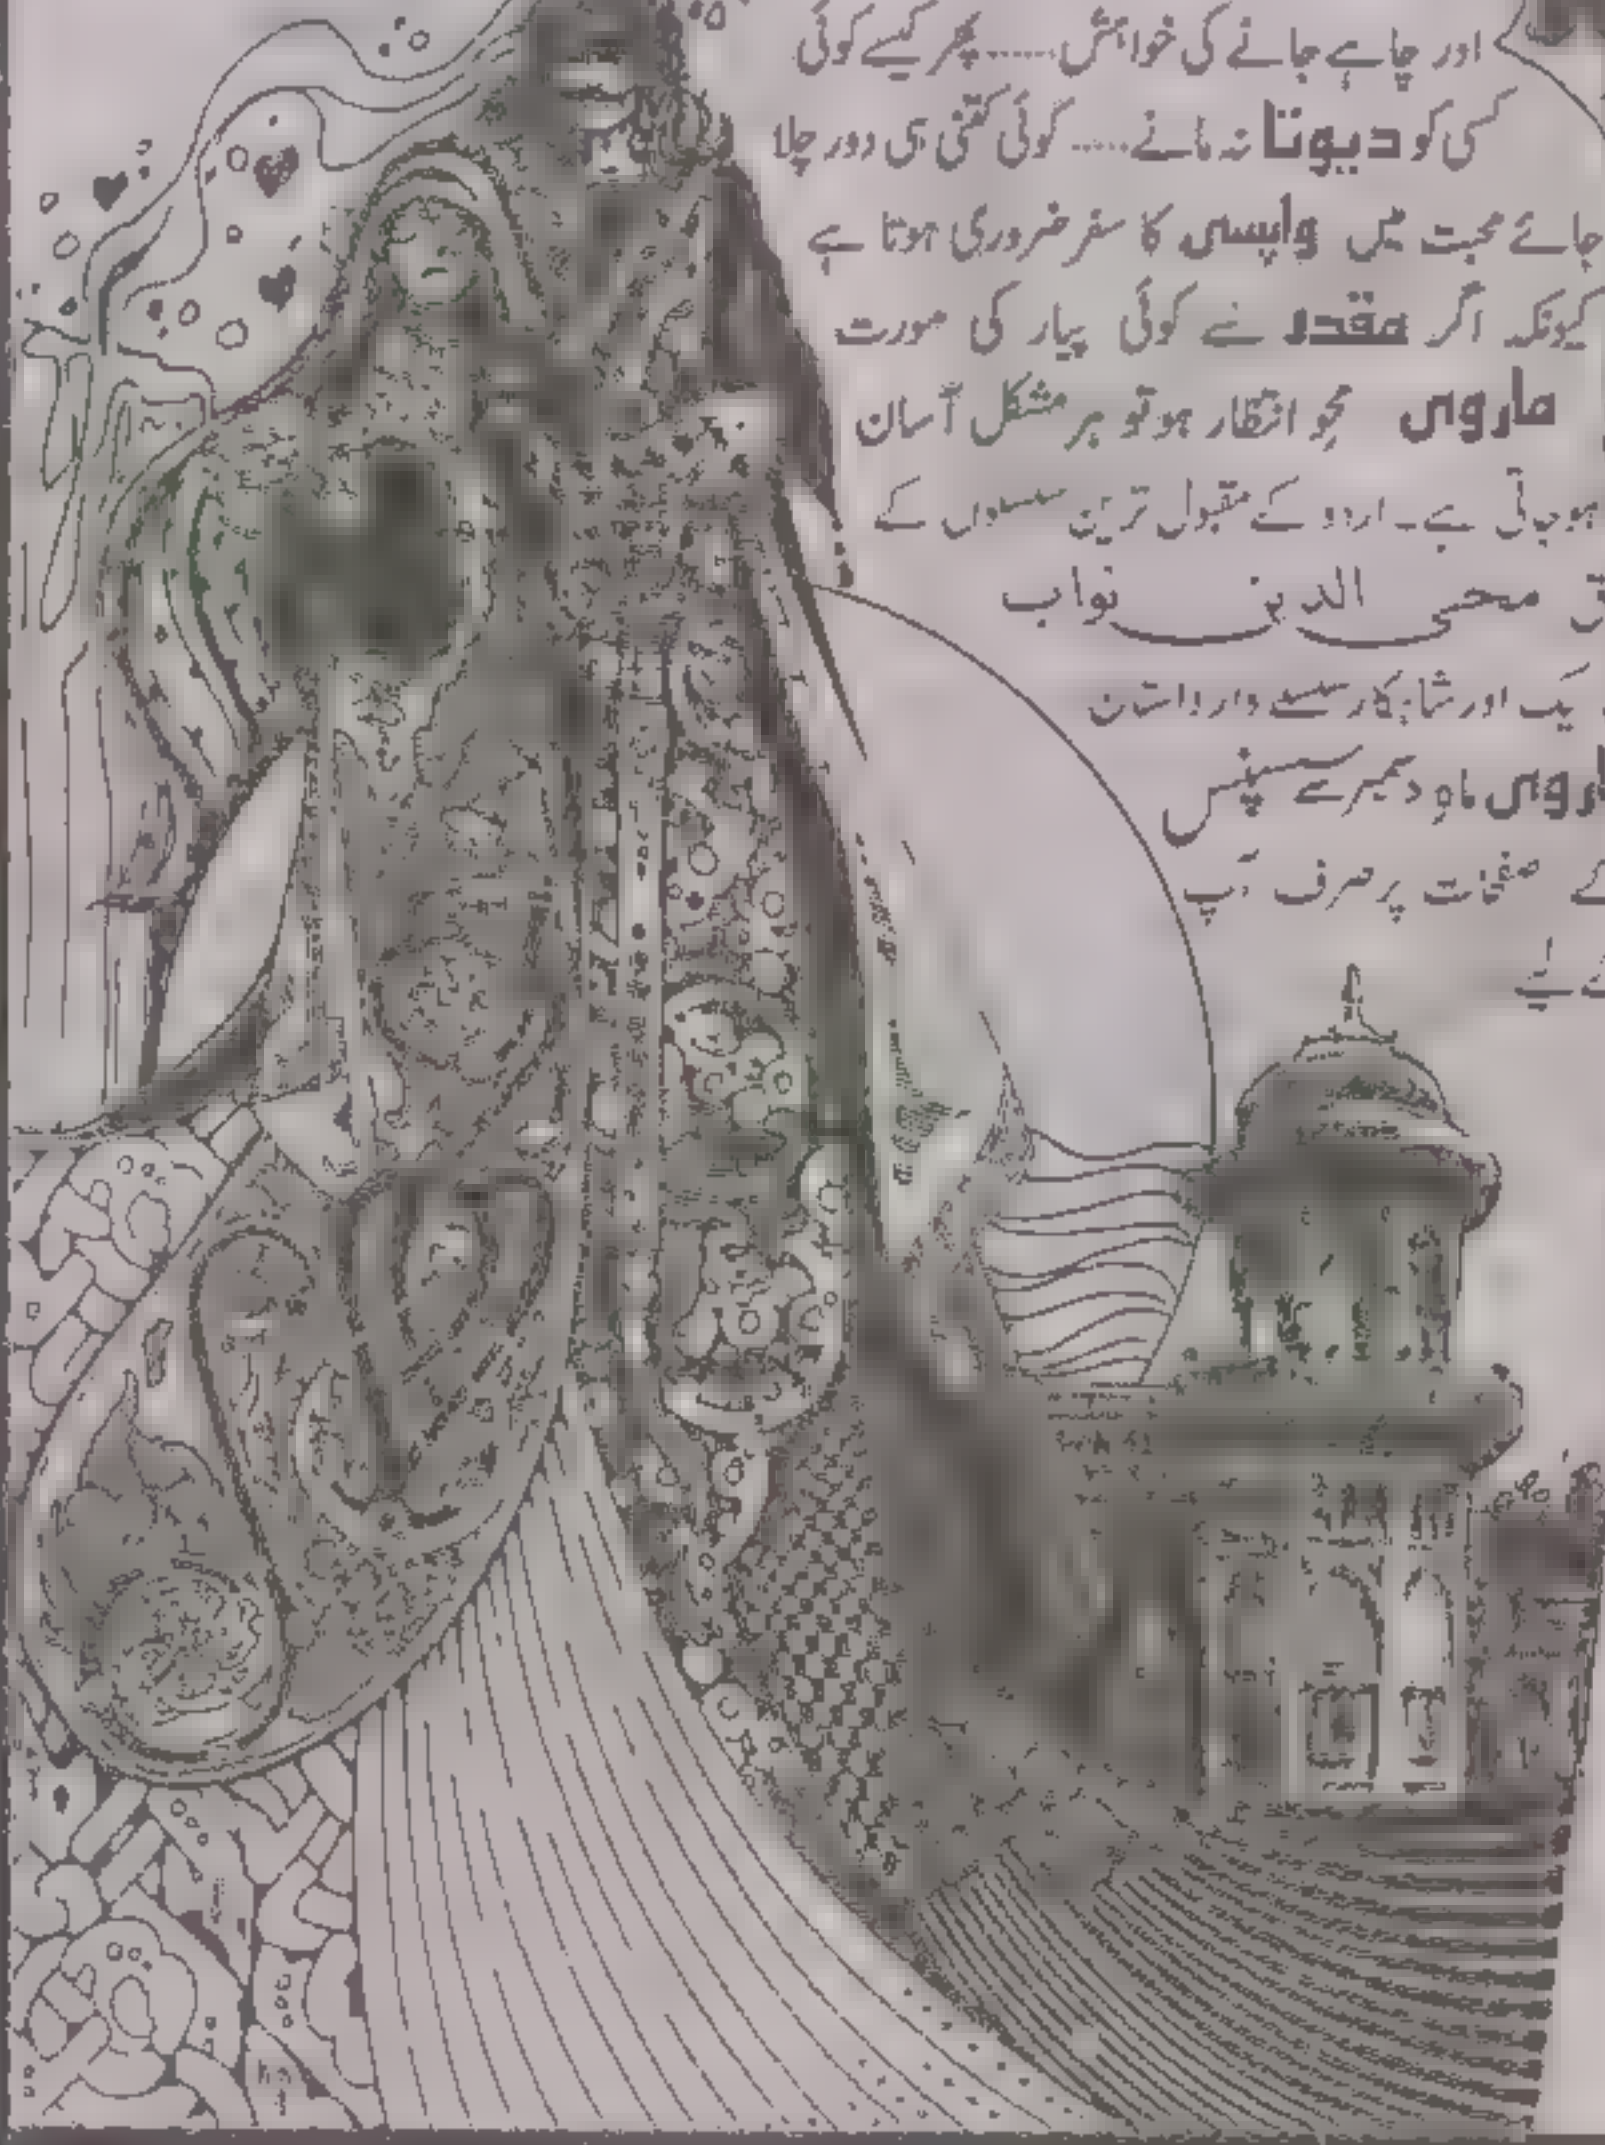 اور چاہے جانے کی خواہش..... پھر کیسے کوئی
کسی کو دیوتا نہ مانے.... کوئی کتنی ہی دور چلا
جائے محبت میں واپسی کا سفر ضروری ہوتا ہے
کیونکہ اگر مقدر نے کوئی پیار کی مورت
ماروی محو انتظار ہو تو ہر مشکل آسان
ہو جاتی ہے۔ اردو کے مقبول ترین سلسلوں کے
محی الدین نواب
ایک اور شاہکار سلسلے وار داستان
ماروی ماہ دسمبر سے سسپنس
کے صفحات پر صرف آپ
کے لیے